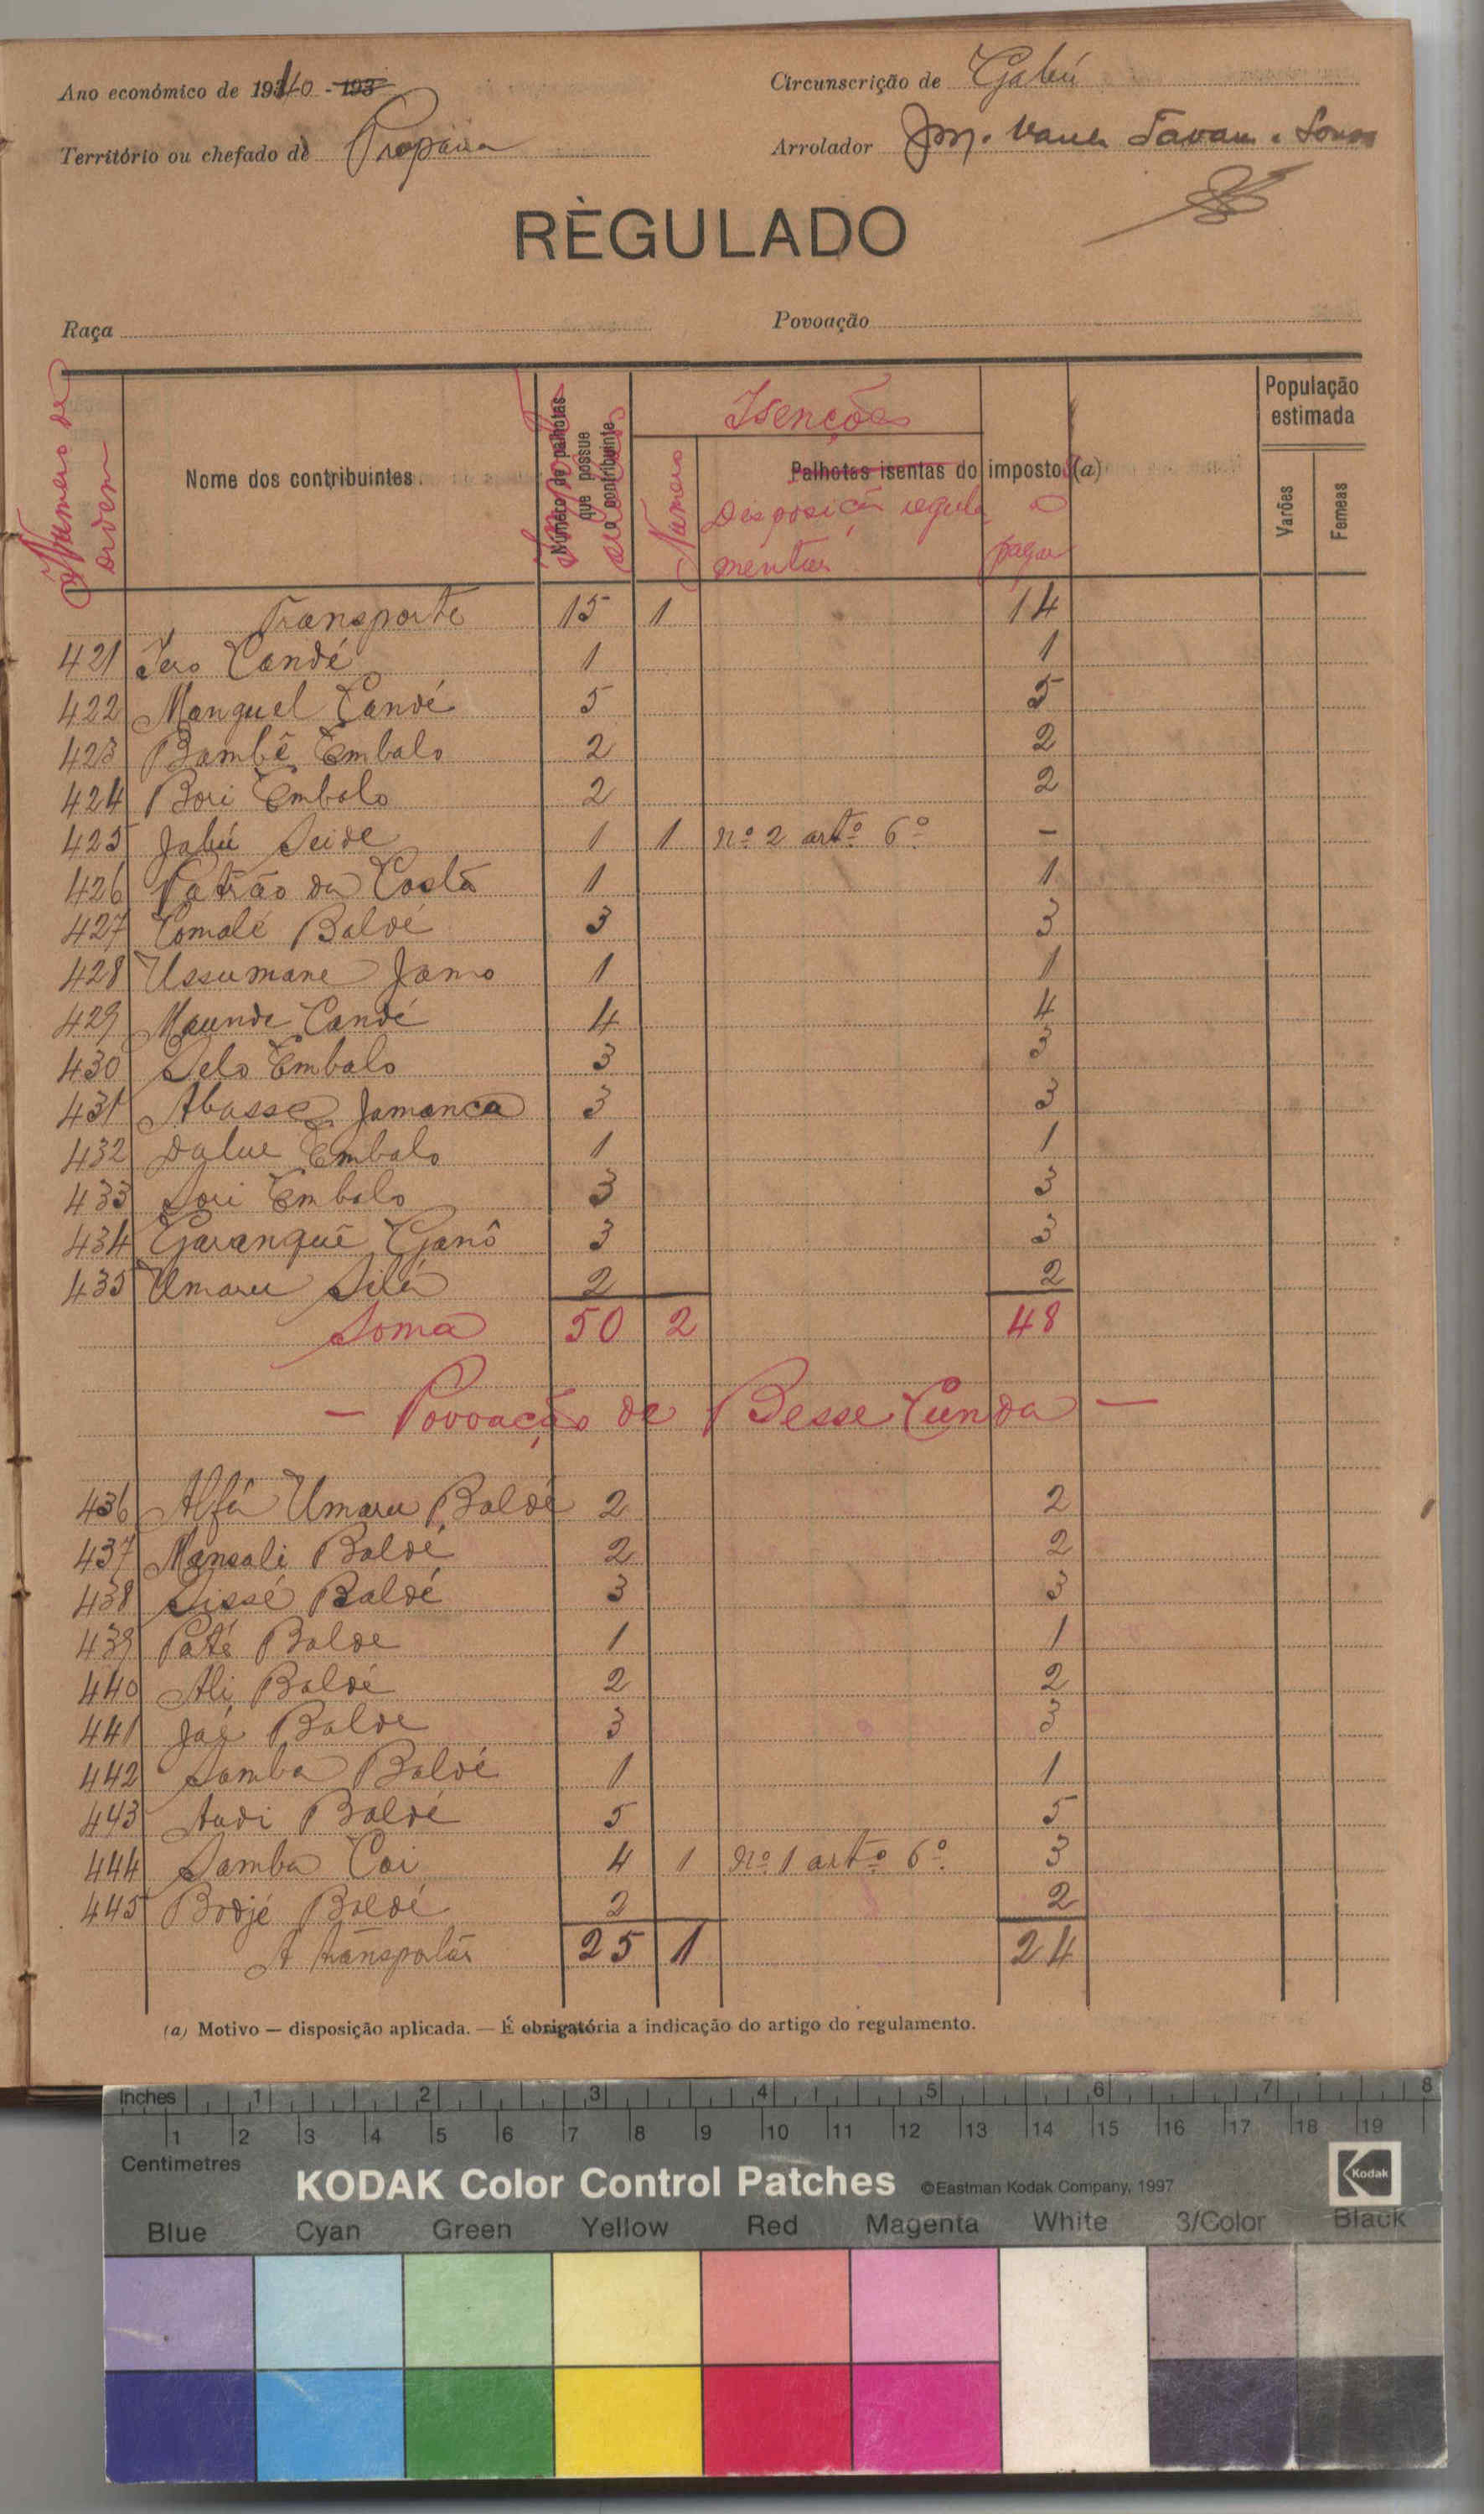 Ano económico de 1940 - 193
Circunscrição de Gabú
Território ou chefado de Propana
Arrolador
RÈGULADO
Raça
Povoação
Numero de ordem
Nome dos contribuintes
Número de palhotas que possue o contribuinte
Isenções
Numero
Palhotas isentas do imposto (a)
Disposição regulamentar
a pagar
População estimada
Varões
Femeas
Transporte 15 1 14
421 Jero Candé 1 1
422 Manguel Candé 5 5
423 Bambê Embalo 2 2
424 Bori Embalo 2 2
425 Jabú Seide 1 1 nº 2 artº 6º -
426 Patrão da Costa 1 1
427 Comalé Baldé 3 3
428 Ussumane Jamo 1 1
429 Maunde Candé 4 4
430 Selo Embalo 3 3
431 Abasse Jamanca 3 3
432 Dalue Embalo 1 1
433 Sori Embalo 3 3
434 Garanguê Ganô 3 3
435 Umaru Silá 2 2
Soma 50 2 48
- Povoação de Besse Cunda -
436 Alfá Umaru Baldé 2 2
437 Mansali Baldé 2 2
438 Sissé Baldé 3 3
439 Paté Balde 1 1
440 Ali Baldé 2 2
441 Jaé Balde 3 3
442 Samba Baldé 1 1
443 Audi Baldé 5 5
444 Samba Cai 4 1 nº 1 artº 6º 3
445 Bodjé Baldé 2 2
A transportar 25 1 24
(a) Motivo — disposição aplicada. — É obrigatória a indicação do artigo do regulamento.
Inches 1 2 3 4 5 6 7 8
1 2 3 4 5 6 7 8 9 10 11 12 13 14 15 16 17 18 19
Centimetres
KODAK Color Control Patches ©Eastman Kodak Company, 1997 Kodak
Blue Cyan Green Yellow Red Magenta White 3/Color Black